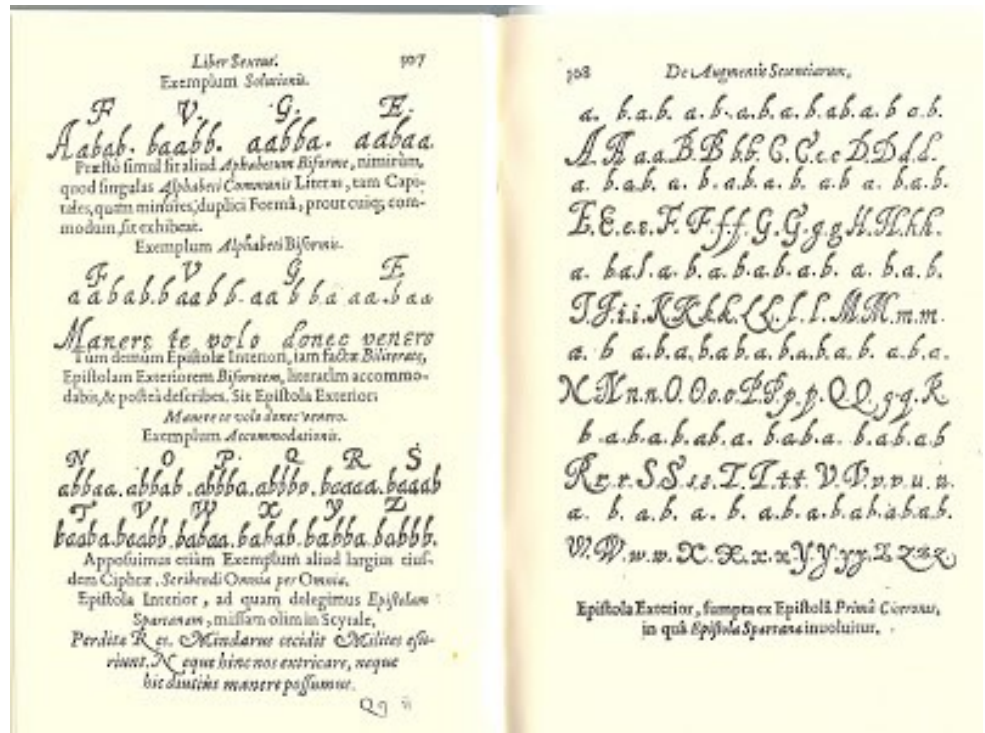 Liber Sextus. 307
Exemplum Solutionis.
F V. G. E.
Aabab. baabb. aabba. aabaa.
Præstò simul sit aliud Alphabetum Biforme, nimirùm,
quod singulas Alphabeti Communis Literas, tam Capi-
tales, quam minores, duplici Formâ, prout cuiq; com-
modum sit exhibeat.
Exemplum Alphabeti Biformis.
F V G E
aabab.baabb.aabba aa.baa
Manere te volo donec venero
Tum demùm Epistolæ Interiori, iam factæ Biliteratæ,
Epistolam Exteriorem Biformem, literatìm accommo-
dabis, & posteà describes. Sit Epistola Exterior:
Manere te volo donec venero.
Exemplum Accommodationis.
N O P. Q R S
abbaa.abbab.abbba.abbbb.baaaa.baaab
T V W X Y Z
baaba.baabb.babaa.babab.babba.babbb.
Apposuimus etiàm Exemplum aliud largius eius-
dem Ciphræ, Scribendi Omnia per Omnia.
Epistola Interior, ad quam delegimus Epistolam
Spartanam, missam olim in Scytale,
Perditæ Res. Mindarus cecidit Milites esu-
riunt. Neque hinc nos extricare, neque
hic diutiùs manere possumus.
Qq ij
308 De Augmentis Scientiarum,
a. b.a.b. a. b.a.b.a.b.ab.a.b a.b.
A.A a.a.B.B b.b. C.C.c.c D.D d.d.
a. b.a.b. a. b. a.b.a. b. a.b a. b.a.b.
E.E.e.e.F.F.f.f.G.G.g.g H.H.h.h.
a. b.a.b. a. b.a.b.a.b. a.b. a. b.a.b.
I.I.i.i.K.K.k.k.L.L.l.l.M.M.m.m.
a. b a.b.a.b.a.b.a.b.a.b.a.b. a.b.a.
N.N.n.n.O.O.o.o.P.P.p.p.Q.Q.q.q.R.
b.a.b.a.b.ab.a. b.a.b.a. b.a.b.a.b
R.r.r.S.S.s.s.T.T.t.t.V.V.v.v.u.u.
a. b. a.b. a. b. a.b.a.b.a.b.a.b.a.b.
W.W.w.w.X.X.x.x.Y.Y.y.y.Z.Z.z.z.
Epistola Exterior, sumpta ex Epistolâ Primâ Ciceronis,
in quâ Epistola Spartana involuitur.